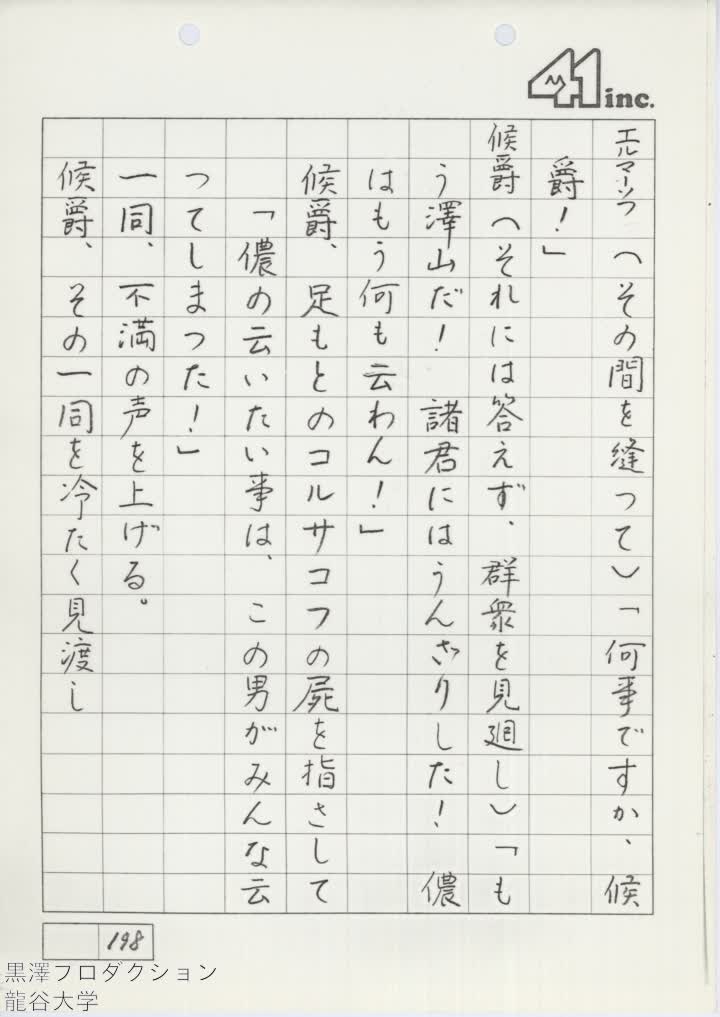 41 inc.
エルマーソフ（その間を縫つて）「何事ですか、候
爵！」
候爵（それには答えず、群衆を見廻し）「も
う澤山だ！　諸君にはうんざりした！　儂
はもう何も云わん！」
候爵、足もとのコルサコフの屍を指さして
「儂の云いたい事は、この男がみんな云
つてしまつた！」
一同、不満の声を上げる。
候爵、その一同を冷たく見渡し
198
黒澤プロダクション
龍谷大学